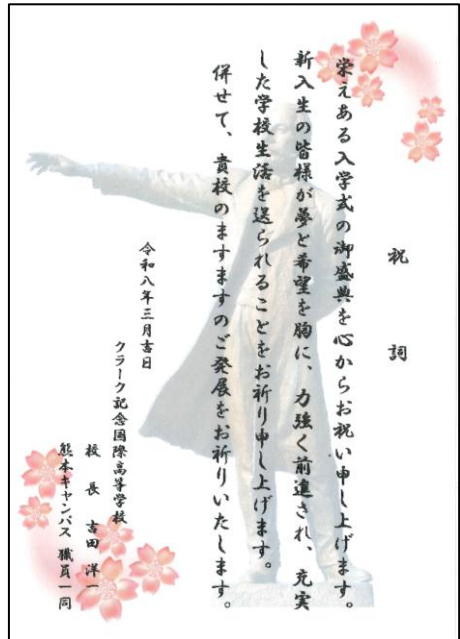 祝詞
栄えある入学式の御盛典を心からお祝い申し上げます。
新入生の皆様が夢と希望を胸に、力強く前進され、充実
した学校生活を送られることをお祈り申し上げます。
併せて、貴校のますますのご発展をお祈りいたします。
令和八年三月吉日
クラーク記念国際高等学校
校長 吉田洋一
熊本キャンパス 職員一同